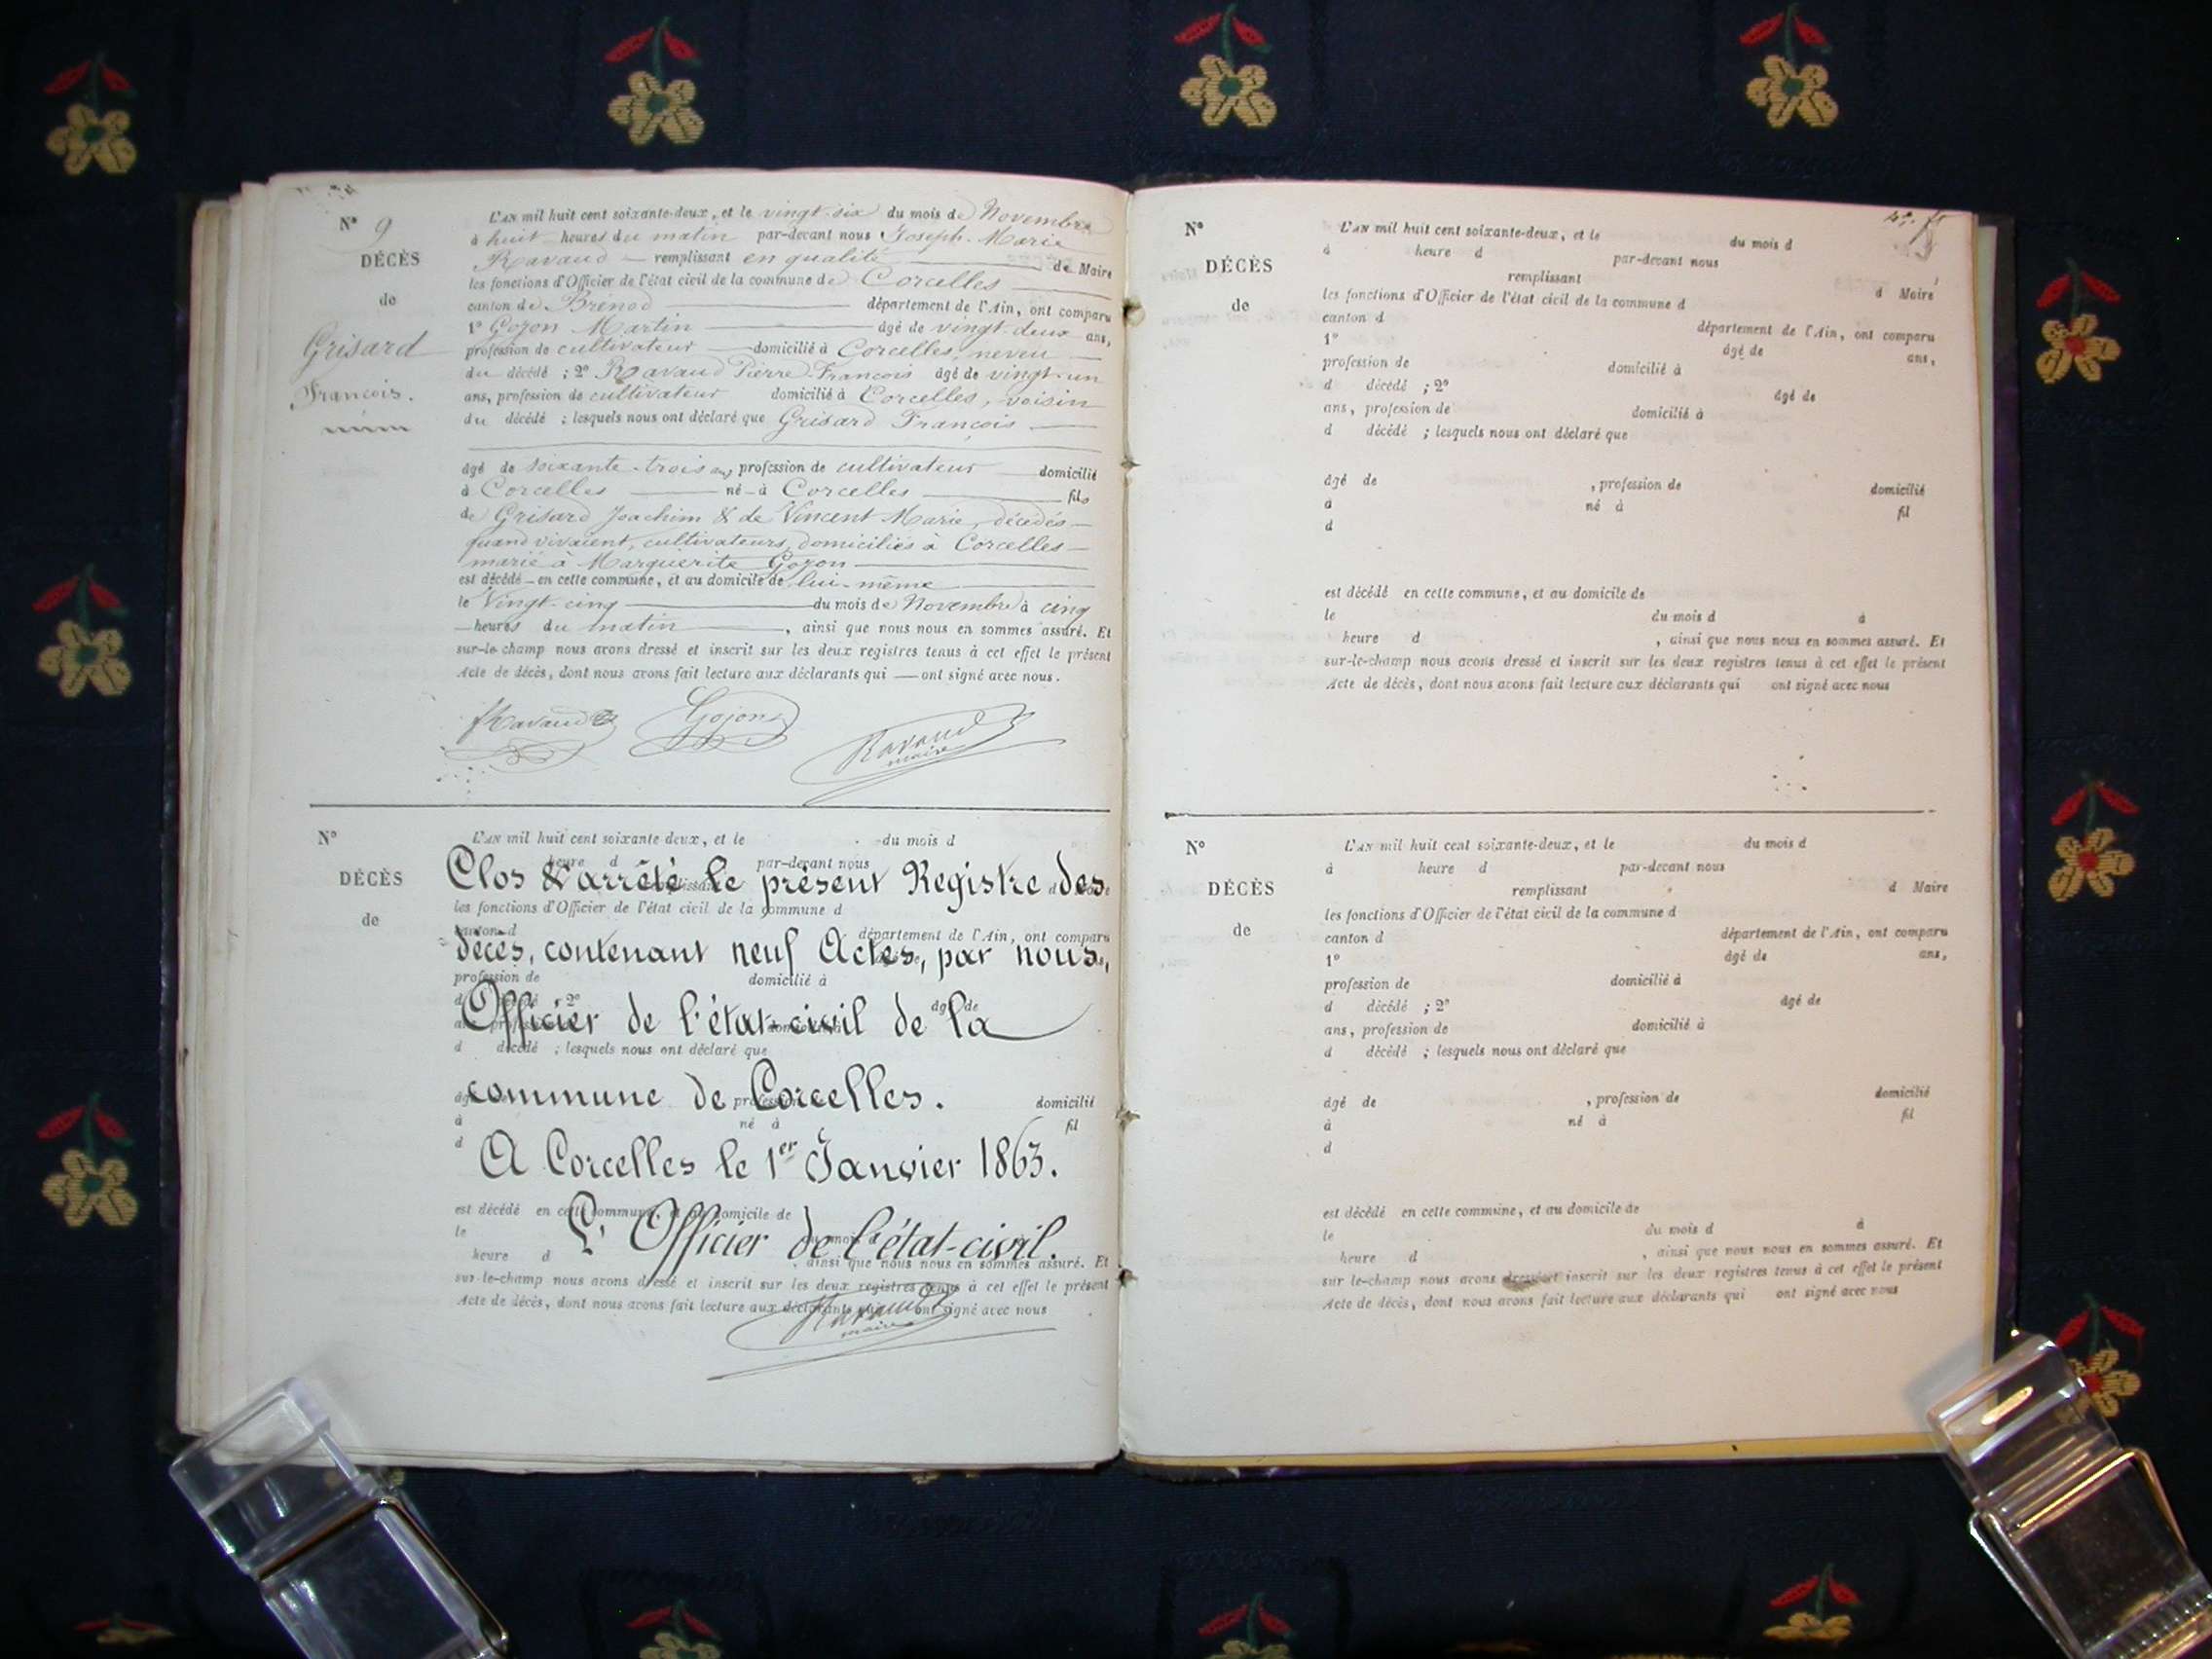 N° 9
DÉCÈS
de
Grisard
François.
L'AN mil huit cent soixante-deux, et le vingt-six du mois de Novembre
à huit heures du matin par-devant nous Joseph-Marie
Ravaud — remplissant en qualité — de Maire
les fonctions d'Officier de l'état civil de la commune de Corcelles
canton de Brénod — département de l'Ain, ont comparu
1° Gozon Martin — âgé de vingt-deux ans,
profession de cultivateur — domicilié à Corcelles, neveu —
du décédé ; 2° Ravaud Pierre François âgé de vingt-un
ans, profession de cultivateur domicilié à Corcelles, voisin
du décédé ; lesquels nous ont déclaré que Grisard François —
âgé de soixante-trois ans, profession de cultivateur — domicilié
à Corcelles — né à Corcelles — fils
de Grisard Joachim & de Vincent Marie, décédés —
quand vivaient, cultivateurs, domiciliés à Corcelles —
marié à Marguerite Gozon —
est décédé en cette commune, et au domicile de lui-même
le Vingt-cinq — du mois de Novembre à cinq
— heures du matin —, ainsi que nous nous en sommes assuré. Et
sur-le-champ nous avons dressé et inscrit sur les deux registres tenus à cet effet le présent
Acte de décès, dont nous avons fait lecture aux déclarants qui — ont signé avec nous.
Ravaud Gojon Ravaud
maire
N°
DÉCÈS
de
L'AN mil huit cent soixante-deux, et le du mois d
heure d par-devant nous
Clos & arrêté le présent Registre des
les fonctions d'Officier de l'état civil de la commune d
canton d département de l'Ain, ont comparu
décès, contenant neuf Actes, par nous,
profession de domicilié à
d décédé ; 2° âgé de
Officier de l'état-civil de la
ans, profession de domicilié à
d décédé ; lesquels nous ont déclaré que
commune de Corcelles.
âgé de profession domicilié
à né à fil
d
A Corcelles le 1er Janvier 1863.
est décédé en cette commune, et au domicile de
le du mois d
L'Officier de l'état-civil.
heure d , ainsi que nous nous en sommes assuré. Et
sur-le-champ nous avons dressé et inscrit sur les deux registres tenus à cet effet le présent
Acte de décès, dont nous avons fait lecture aux déclarants qui ont signé avec nous
Ravaud
maire
N°
DÉCÈS
de
L'AN mil huit cent soixante-deux, et le du mois d
à heure d par-devant nous
remplissant d Maire
les fonctions d'Officier de l'état civil de la commune d
canton d département de l'Ain, ont comparu
1° âgé de ans,
profession de domicilié à
d décédé ; 2° âgé de
ans, profession de domicilié à
d décédé ; lesquels nous ont déclaré que
âgé de , profession de domicilié
à né à fil
d
est décédé en cette commune, et au domicile de
le du mois d à
heure d , ainsi que nous nous en sommes assuré. Et
sur-le-champ nous avons dressé et inscrit sur les deux registres tenus à cet effet le présent
Acte de décès, dont nous avons fait lecture aux déclarants qui ont signé avec nous
N°
DÉCÈS
de
L'AN mil huit cent soixante-deux, et le du mois d
à heure d par-devant nous
remplissant d Maire
les fonctions d'Officier de l'état civil de la commune d
canton d département de l'Ain, ont comparu
1° âgé de ans,
profession de domicilié à
d décédé ; 2° âgé de
ans, profession de domicilié à
d décédé ; lesquels nous ont déclaré que
âgé de , profession de domicilié
à né à fil
d
est décédé en cette commune, et au domicile de
le du mois d à
heure d , ainsi que nous nous en sommes assuré. Et
sur le-champ nous avons dressé et inscrit sur les deux registres tenus à cet effet le présent
Acte de décès, dont nous avons fait lecture aux déclarants qui ont signé avec nous